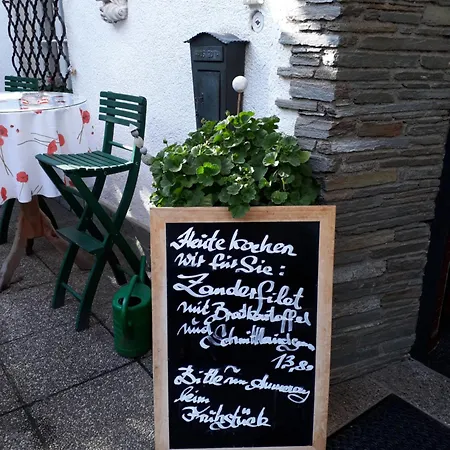 Heute kochen
wir für Sie:
Zanderfilet
mit Bratkartoffel
und Schnittlauchsauce
13,80
Bitte um Anmeldung
beim
Frühstück